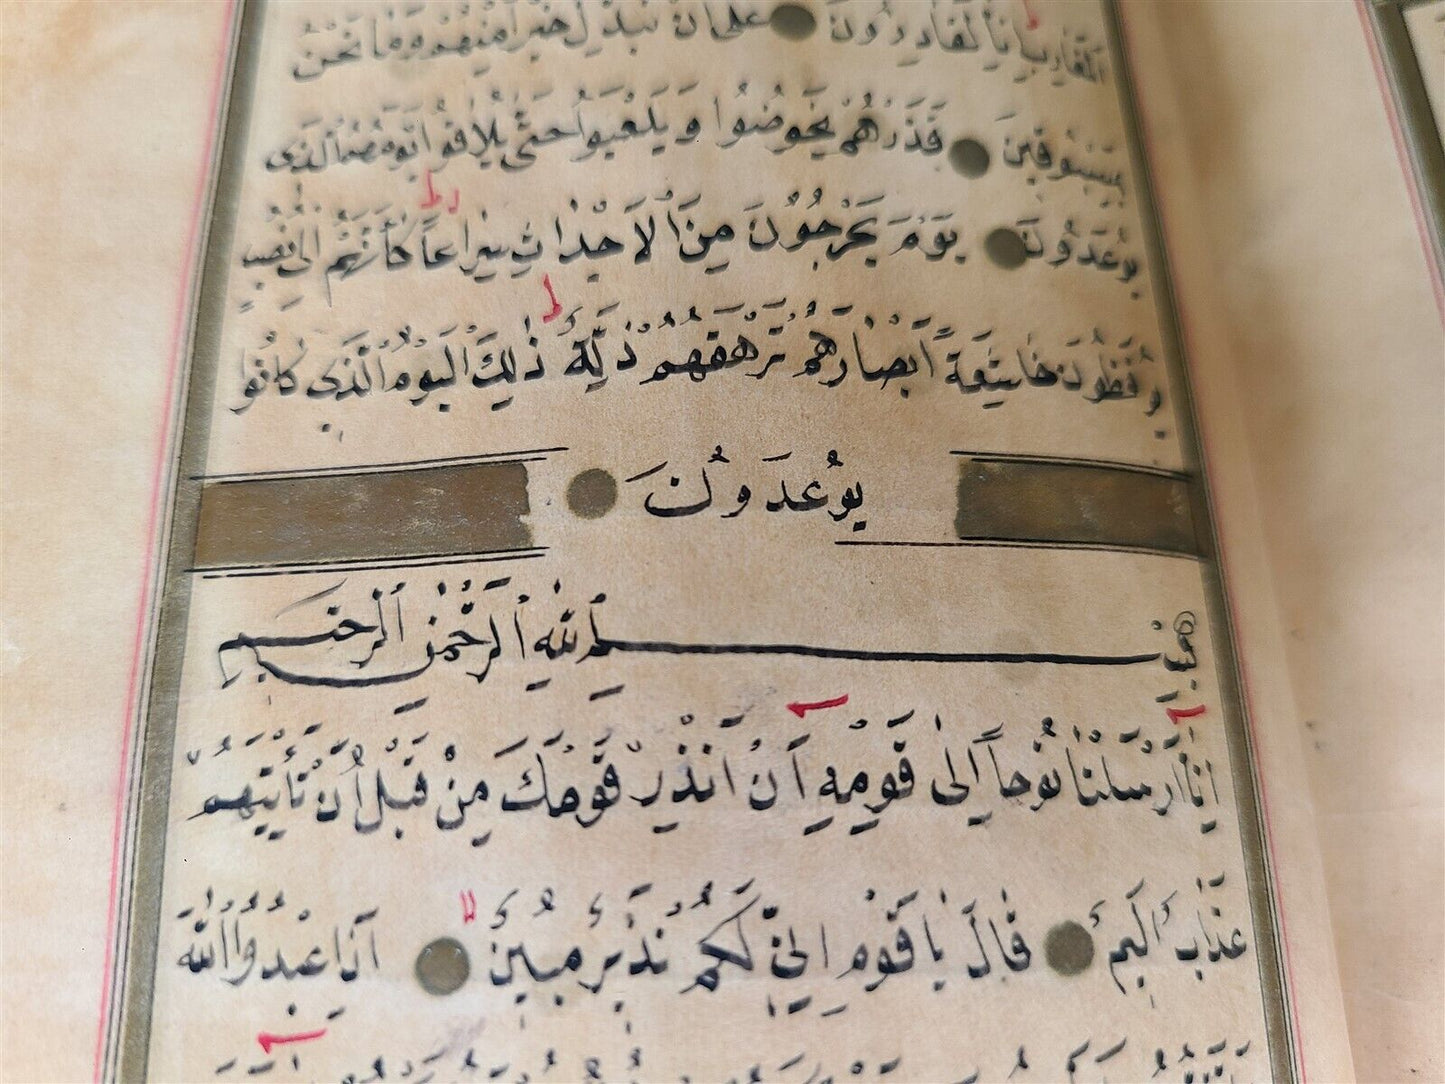 الْمَغَارِبِ اِنَّا لَقَادِرُونَ عَلٰى اَنْ نُبَدِّلَ خَيْرًا مِنْهُمْ وَمَا نَحْنُ
بِمَسْبُوقِينَ فَذَرْهُمْ يَخُوضُوا وَيَلْعَبُوا حَتّٰى يُلَاقُوا يَوْمَهُمُ الَّذِى
يُوعَدُونَ يَوْمَ يَخْرُجُونَ مِنَ الْاَجْدَاثِ سِرَاعًا كَاَنَّهُمْ اِلٰى نُصُبٍ
يُوفِضُونَ خَاشِعَةً اَبْصَارُهُمْ تَرْهَقُهُمْ ذِلَّةٌ ذٰلِكَ الْيَوْمُ الَّذِى كَانُوا
يُوعَدُونَ
بِسْمِ اللّٰهِ الرَّحْمٰنِ الرَّحِيمِ
اِنَّا اَرْسَلْنَا نُوحًا اِلٰى قَوْمِهِ اَنْ اَنْذِرْ قَوْمَكَ مِنْ قَبْلِ اَنْ يَأْتِيَهُمْ
عَذَابٌ اَلِيمٌ قَالَ يَا قَوْمِ اِنِّى لَكُمْ نَذِيرٌ مُبِينٌ اَنِ اعْبُدُوا اللّٰهَ